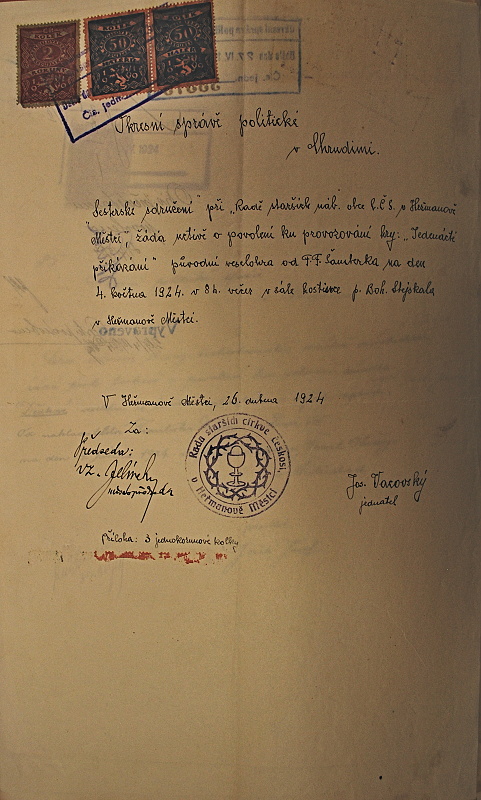 KOLEK
KOLEK
KOLEK
2
50
50
KORUNY
HALÉŘŮ
HALÉŘŮ
Čís. jedn.
Okresní správě politické
v Chrudimi.
"Sesterské sdružení" při "Radě starších náb. obce C.Č.S. v Heřmanově
Městci", žádá uctivě o povolení ku provozování hry: "Jedenácté
přikázání" původní veselohra od F.F. Šamberka na den
4. května 1924 v 8 h. večer v sále hostince p. Boh. Stejskala
v Heřmanově Městci.
Vypraveno
V Heřmanově Městci, 26. dubna 1924
Za:
Předseda:
vz.
místopředseda
Rada starších církve českosl.
v Heřmanově Městci
Jos. Vacovský
jednatel
Příloha: 3 jednokorunové kolky